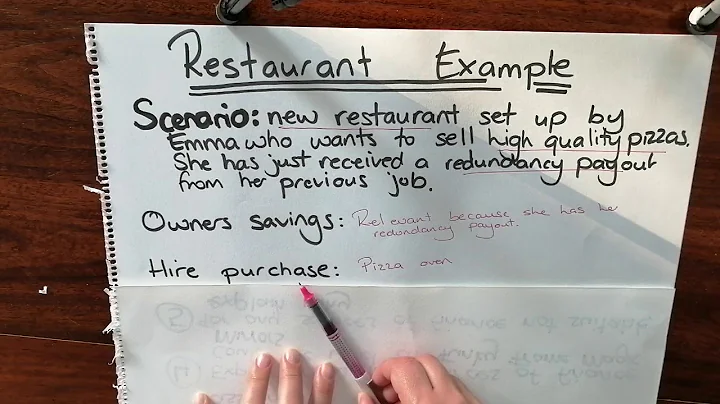 Restaurant Example
Scenario: new restaurant set up by
Emma who wants to sell high quality pizzas.
She has just received a redundancy payout
from her previous job.
Owners savings: Relevant because she has her
redundancy payout.
Hire purchase: Pizza oven